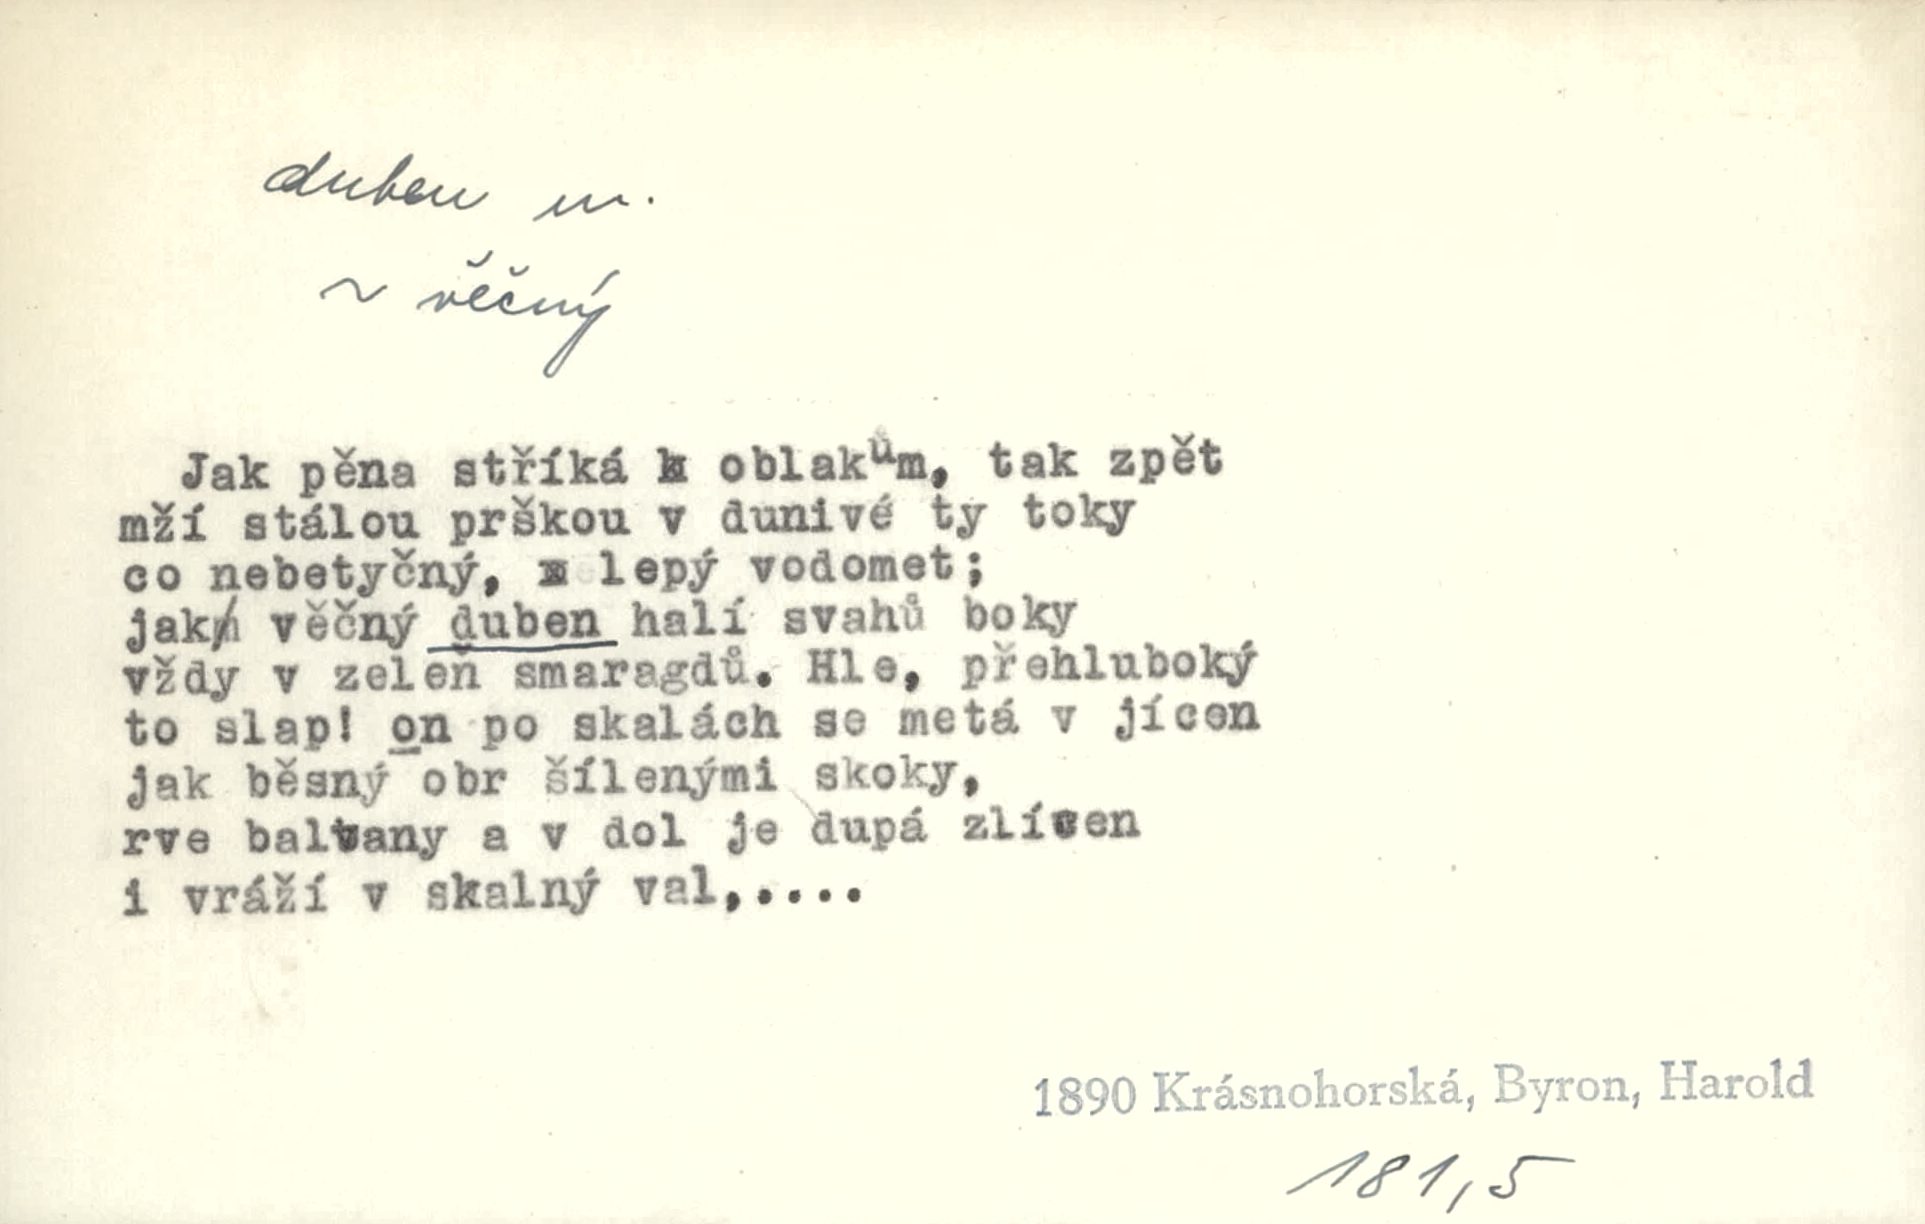 duben m.
~ věčný
Jak pěna stříká k oblakům, tak zpět
mží stálou prškou v dunivé ty toky
co nebetyčný, lepý vodomet;
jak věčný duben halí svahů boky
vždy v zeleň smaragdů. Hle, přehluboký
to slap! on po skalách se metá v jícen
jak běsný obr šílenými skoky,
rve balvany a v dol je dupá zlícen
i vráží v skalný val,....
1890 Krásnohorská, Byron, Harold
181,5